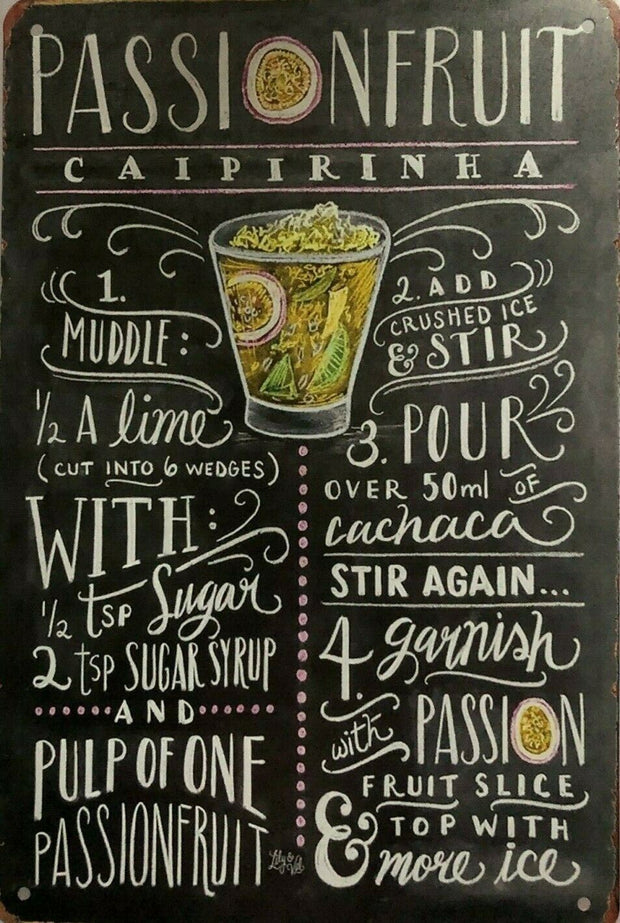 PASSIONFRUIT
CAIPIRINHA
1.
MUDDLE:
1/2 A lime
(CUT INTO 6 WEDGES)
WITH:
1/2 tsp Sugar
2 tsp SUGAR SYRUP
AND
PULP OF ONE
PASSIONFRUIT
Lily & Val
2. ADD
CRUSHED ICE
& STIR
3. POUR
OVER 50ml OF
cachaca
STIR AGAIN...
4. garnish
with PASSION
FRUIT SLICE
& TOP WITH
more ice